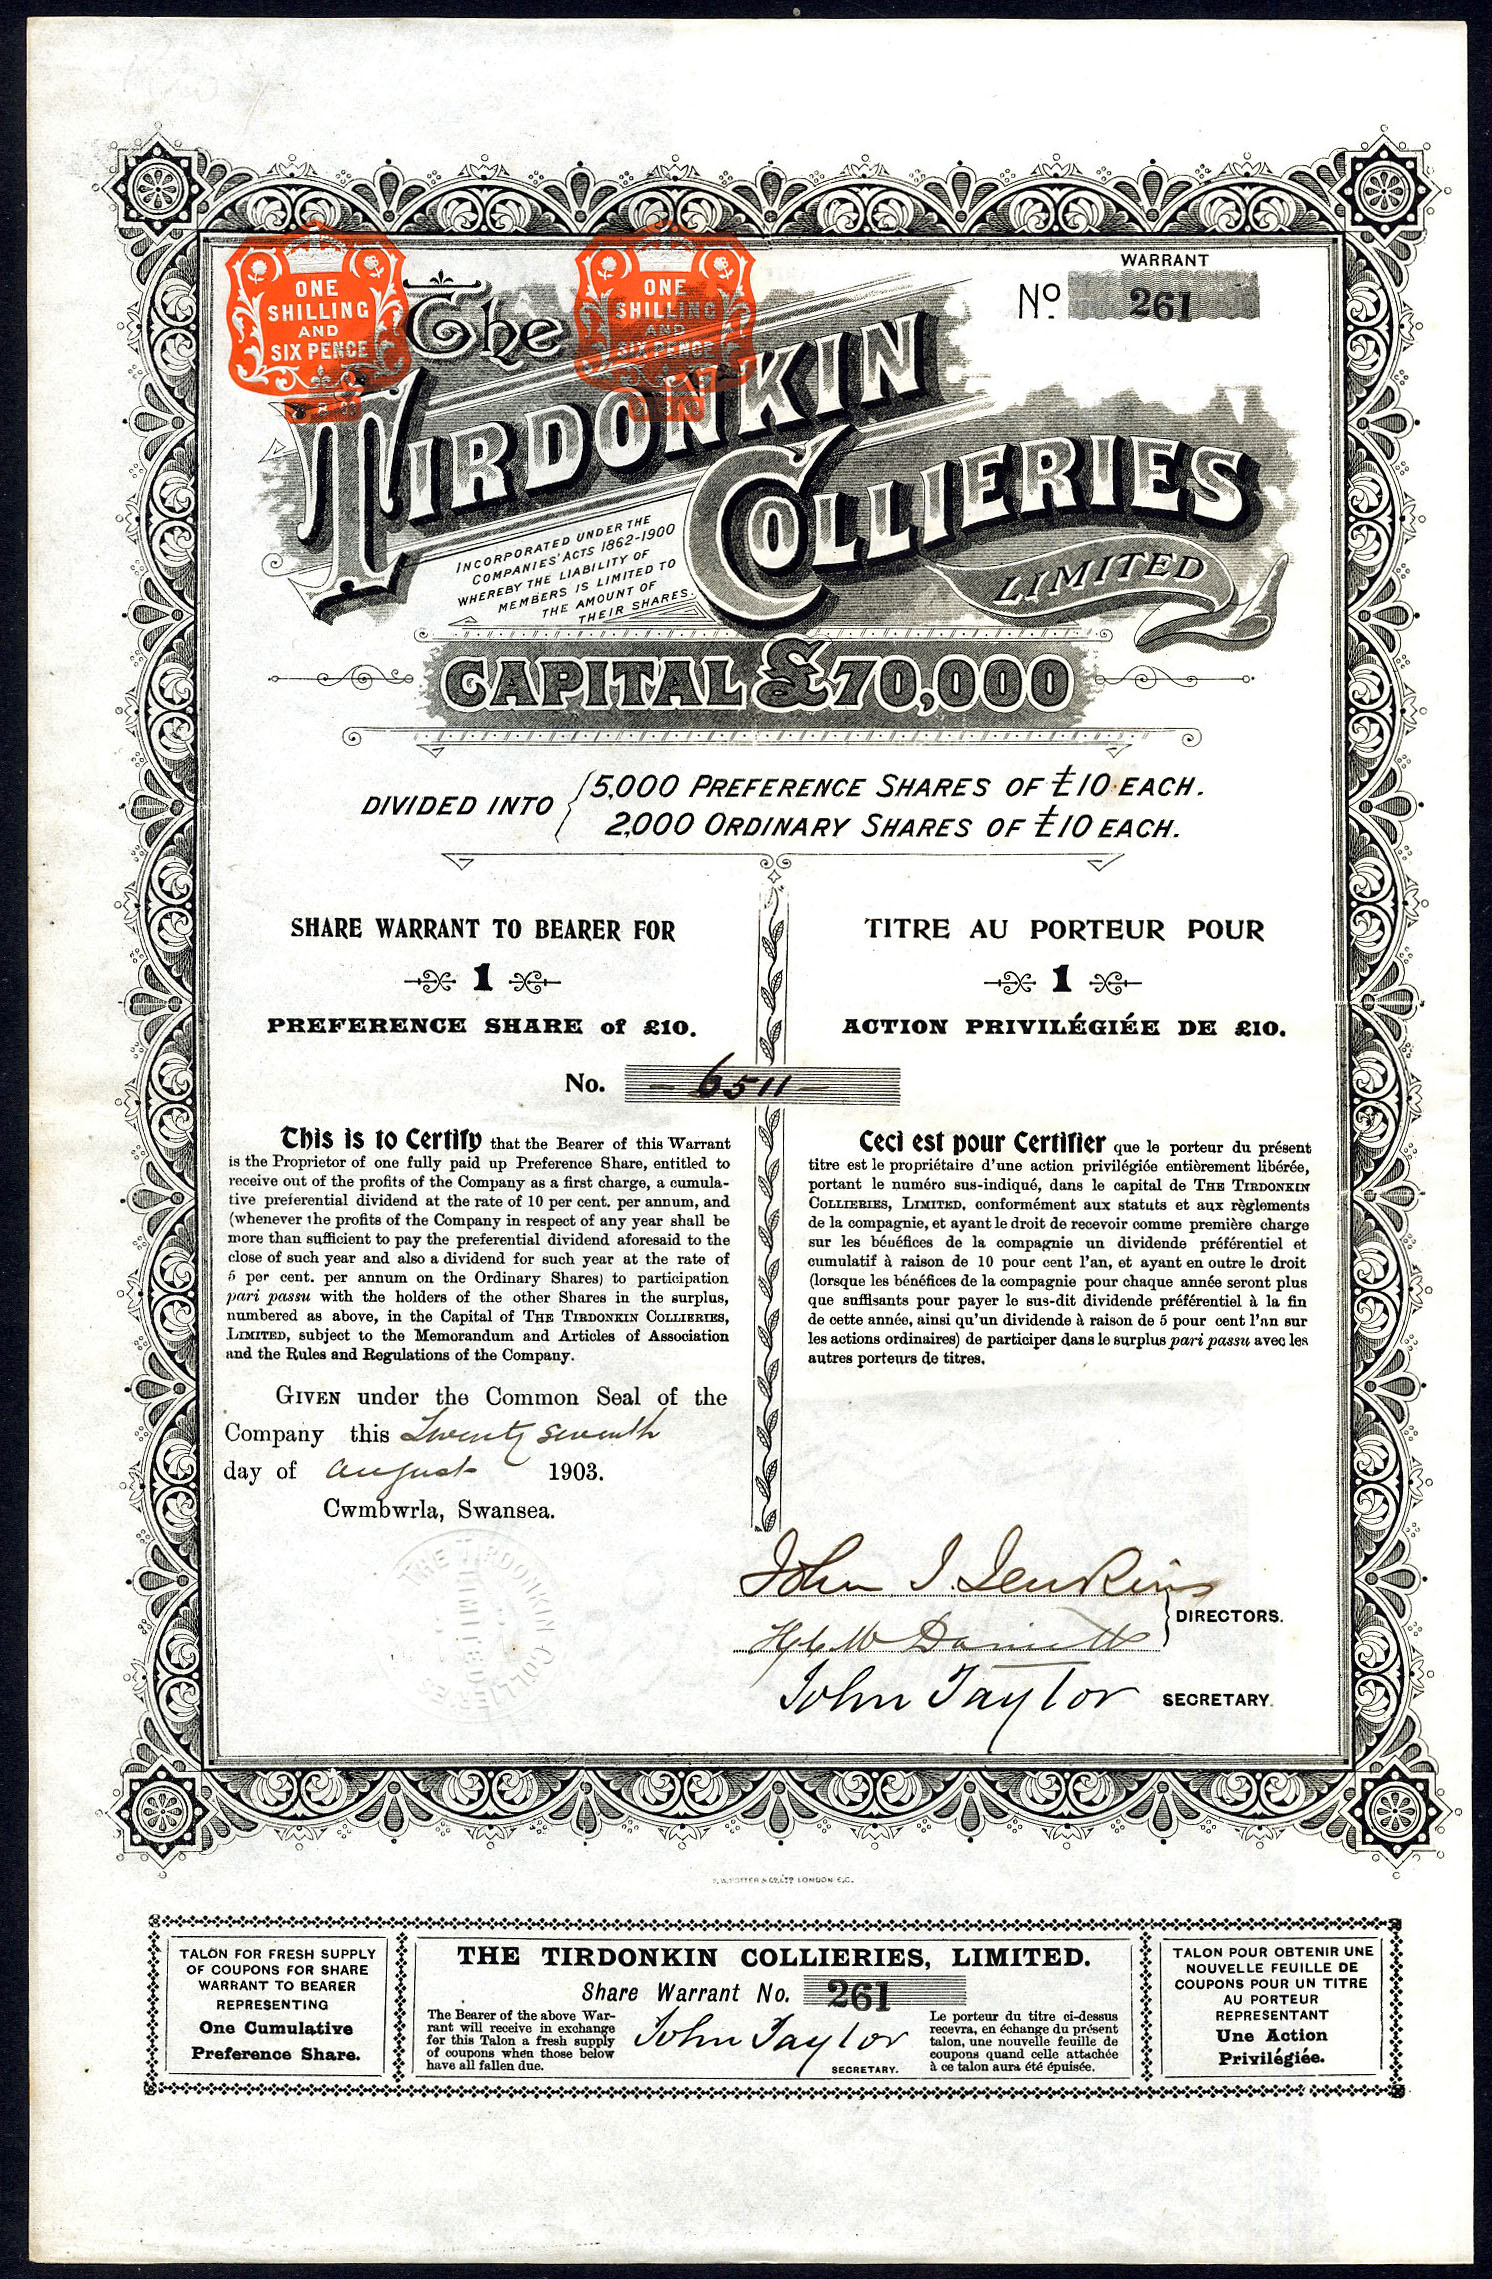 WARRANT
No. 261
ONE
SHILLING
AND
SIX PENCE
ONE
SHILLING
AND
SIX PENCE
The
TIRDONKIN
COLLIERIES
LIMITED
INCORPORATED UNDER THE
COMPANIES' ACTS 1862-1900
WHEREBY THE LIABILITY OF
MEMBERS IS LIMITED TO
THE AMOUNT OF
THEIR SHARES.
CAPITAL £70,000
DIVIDED INTO
5,000 PREFERENCE SHARES OF £10 EACH.
2,000 ORDINARY SHARES OF £10 EACH.
SHARE WARRANT TO BEARER FOR
1
PREFERENCE SHARE of £10.
TITRE AU PORTEUR POUR
1
ACTION PRIVILÉGIÉE DE £10.
No. – 6511 –
This is to Certify that the Bearer of this Warrant
is the Proprietor of one fully paid up Preference Share, entitled to
receive out of the profits of the Company as a first charge, a cumula-
tive preferential dividend at the rate of 10 per cent. per annum, and
(whenever the profits of the Company in respect of any year shall be
more than sufficient to pay the preferential dividend aforesaid to the
close of such year and also a dividend for such year at the rate of
5 per cent. per annum on the Ordinary Shares) to participation
pari passu with the holders of the other Shares in the surplus,
numbered as above, in the Capital of THE TIRDONKIN COLLIERIES,
LIMITED, subject to the Memorandum and Articles of Association
and the Rules and Regulations of the Company.
GIVEN under the Common Seal of the
Company this Twenty seventh
day of August 1903.
Cwmbwrla, Swansea.
Ceci est pour Certifier que le porteur du présent
titre est le propriétaire d'une action privilégiée entièrement libérée,
portant le numéro sus-indiqué, dans le capital de THE TIRDONKIN
COLLIERIES, LIMITED, conformément aux statuts et aux règlements
de la compagnie, et ayant le droit de recevoir comme première charge
sur les bénéfices de la compagnie un dividende préférentiel et
cumulatif à raison de 10 pour cent l'an, et ayant en outre le droit
(lorsque les bénéfices de la compagnie pour chaque année seront plus
que suffisants pour payer le sus-dit dividende préférentiel à la fin
de cette année, ainsi qu'un dividende à raison de 5 pour cent l'an sur
les actions ordinaires) de participer dans le surplus pari passu avec les
autres porteurs de titres.
THE TIRDONKIN COLLIERIES
LIMITED
John J. Jenkins
DIRECTORS.
John Taylor SECRETARY.
POTTER & CO. LTD LONDON E.C.
TALON FOR FRESH SUPPLY
OF COUPONS FOR SHARE
WARRANT TO BEARER
REPRESENTING
One Cumulative
Preference Share.
THE TIRDONKIN COLLIERIES, LIMITED.
Share Warrant No. 261
The Bearer of the above War-
rant will receive in exchange
for this Talon a fresh supply
of coupons when those below
have all fallen due.
John Taylor
SECRETARY.
Le porteur du titre ci-dessus
recevra, en échange du présent
talon, une nouvelle feuille de
coupons quand celle attachée
à ce talon aura été épuisée.
TALON POUR OBTENIR UNE
NOUVELLE FEUILLE DE
COUPONS POUR UN TITRE
AU PORTEUR
REPRESENTANT
Une Action
Privilégiée.